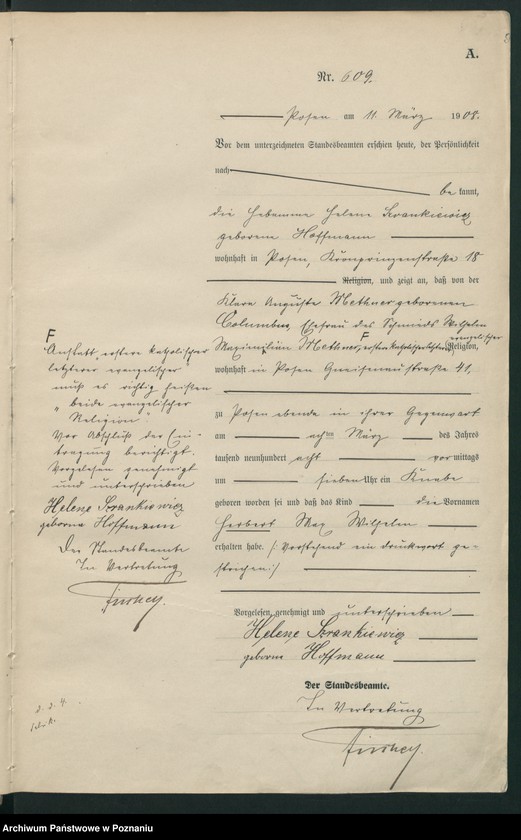 A.
Nr. 609.
Posen am 11. März 1908.
Vor dem unterzeichneten Standesbeamten erschien heute, der Persönlichkeit
nach
be kannt,
die Hebamme Helene Szrankiewicz
geborene Hoffmann
wohnhaft in Posen, Kronprinzenstraße 18
Religion, und zeigt an, daß von der
Klara Auguste Methner geborenen
Columbus, Ehefrau des Schmieds Wilhelm
Maximilian Methner, F ersten katholischer, letzterer evangelischer
Religion,
wohnhaft in Posen Gneisenaustraße 41,
zu Posen ebenda in ihrer Gegenwart
am achten März des Jahres
tausend neunhundert acht vor mittags
um sieben Uhr ein Knabe
geboren worden sei und daß das Kind die Vornamen
Herbert Max Wilhelm
erhalten habe. /: Vorstehend ein Druckwort ge-
strichen :/
Vorgelesen, genehmigt und unterschrieben
Helene Szrankiewicz
geborne Hoffmann
Der Standesbeamte.
In Vertretung
F
"Anstatt, erstere katholischer
letzterer evangelischer
muß es richtig heißen
"beide evangelischer
Religion".
Vor Abschluß der Ein-
tragung berichtigt.
Vorgelesen genehmigt
und unterschrieben
Helene Szrankiewicz
geborne Hoffmann
Der Standesbeamte
In Vertretung
Archiwum Państwowe w Poznaniu
szukajwarchiwach.gov.pl